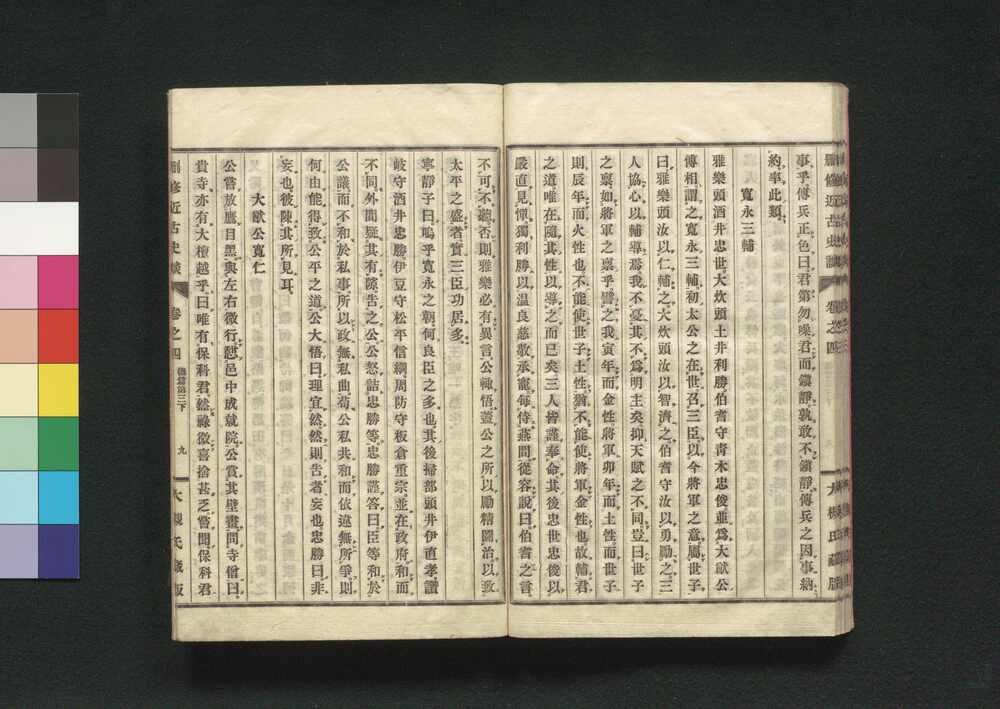 事乎傅兵正色曰君第勿噪君而鎭靜孰敢不鎭靜傅兵之因事納
約率此類
寬永三輔
雅樂頭酒井忠世大炊頭土井利勝伯耆守青木忠俊並爲大猷公
傅相謂之寬永三輔初太公之在世召三臣以今將軍之意屬世子
曰雅樂頭汝以仁輔之大炊頭汝以智濟之伯耆守汝以勇勵之三
人協心以輔導焉我不憂其不爲明主矣抑天賦之不同豈曰世子
之稟如將軍之稟乎譬之我寅年而金性將軍卯年而土性而世子
則辰年而火性也不能使世子土性猶不能使將軍金性也故輔君
之道唯在隨其性以導之而已矣三人皆謹奉命其後忠世忠俊以
嚴直見憚獨利勝以温良慈敬承寵每侍燕間從容說曰伯耆之言
不可不聽否則雅樂必有異言公輒悟蓋公之所以勵精圖治以致
太平之盛者實三臣功居多
寧靜子曰嗚乎寬永之朝何良臣之多也其後掃部頭井伊直孝讚
岐守酒井忠勝伊豆守松平信綱周防守板倉重宗並在政府和而
不同外間疑其有隙告之公公怒詰忠勝等忠勝謹答曰臣等和於
公議而不和於私事所以政無私曲苟公私共和而依違無所爭則
何由能得致公平之道公大悟曰理宜然然則告者妄也忠勝曰非
妄也彼陳其所見耳
大猷公寬仁
公嘗放鷹目黑與左右微行憩邑中成就院公賞其壁畫問寺僧曰
貴寺亦有大檀越乎曰唯有保科君然祿微喜捨甚乏嘗聞保科君
刪修近古史談 卷之四 德篇第三下 九 大槻氏藏版